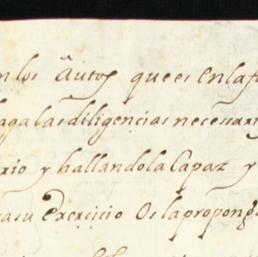 nlos autos que es en la f
aga las diligencias necessari
rio y hallandola Capaz y
casu Exercicio Os la propong